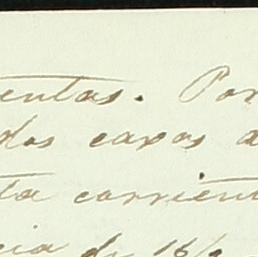 entas. Por
dos caxos a
ta corrient
cia de 16